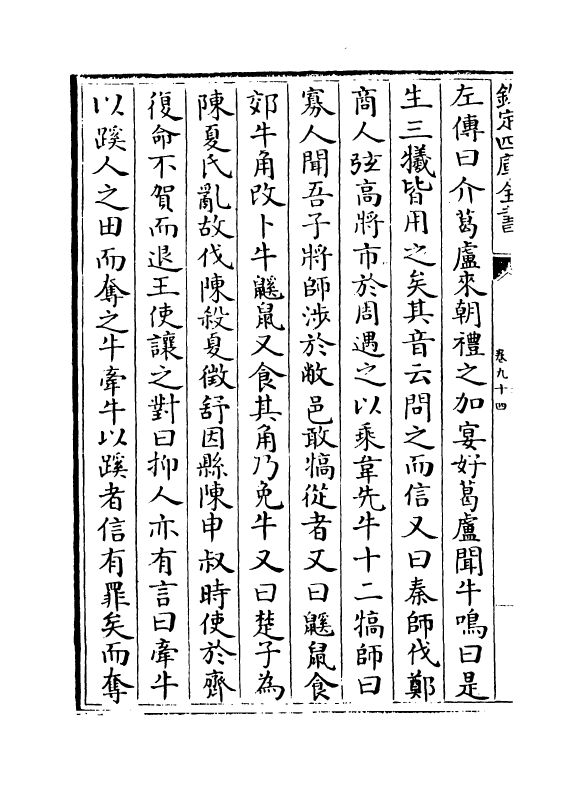 欽定四庫全書
卷九十四
左傳曰介葛盧來朝禮之加宴好葛盧聞牛鳴曰是
生三犧皆用之矣其音云問之而信又曰秦師伐鄭
商人弦高將市於周遇之以乘韋先牛十二犒師曰
寡人聞吾子將師涉於敝邑敢犒從者又曰鼷鼠食
郊牛角改卜牛鼷鼠又食其角乃免牛又曰楚子為
陳夏氏亂故伐陳殺夏徵舒因縣陳申叔時使於齊
復命不賀而退王使讓之對曰抑人亦有言曰牽牛
以蹊人之田而奪之牛牽牛以蹊者信有罪矣而奪